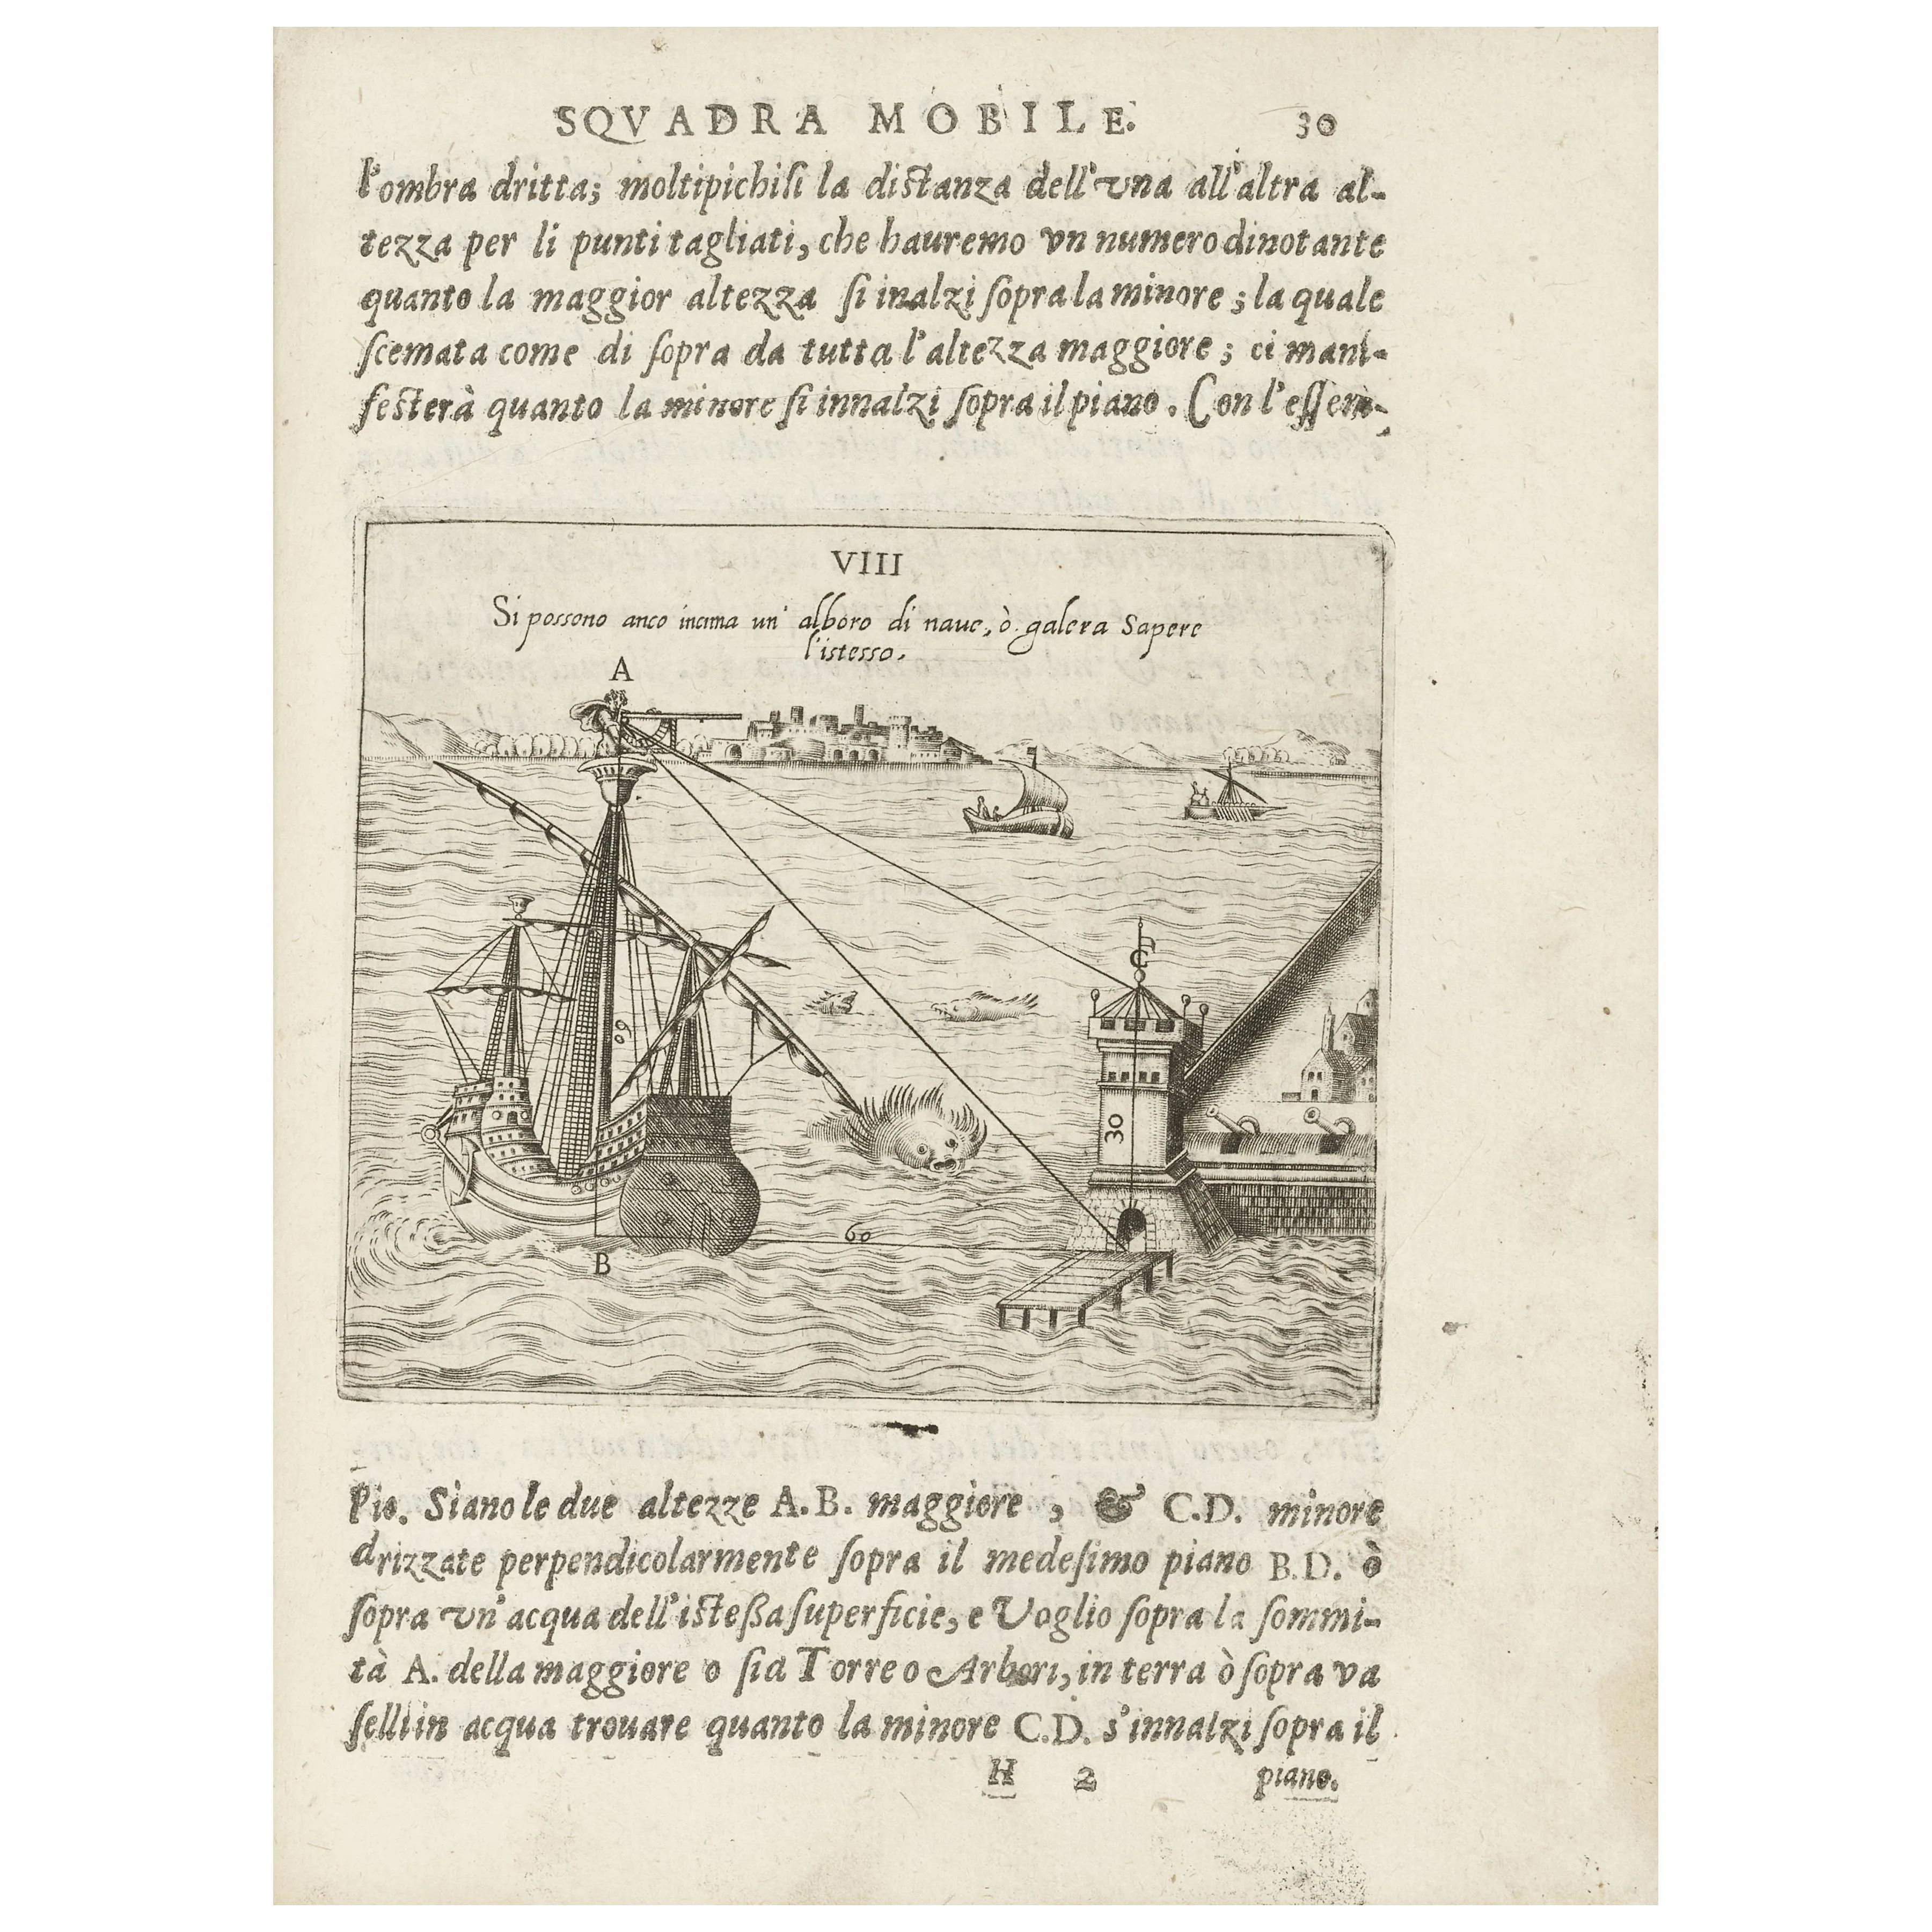 SQVADRA MOBILE. 30
l'ombra dritta; moltipichiſi la diſtanza dell'vna all'altra al-
tezza per li punti tagliati, che hauremo vn numero dinotante
quanto la maggior altezza ſi inalzi ſopra la minore; la quale
ſcemata come di ſopra da tutta l'altezza maggiore; ci mani-
feſterà quanto la minore ſi innalzi ſopra il piano. Con l'eſſem-
VIII
Si possono anco incima un' alboro di naue, ò galera Sapere
l'istesso.
A
C
60
30
60
B
Pio. Siano le due altezze A.B. maggiore, & C.D. minore
drizzate perpendicolarmente ſopra il medeſimo piano B.D. ò
ſopra vn'acqua dell'iſteßa ſuperficie, e Voglio ſopra la ſommi-
tà A. della maggiore o ſia Torre o Arbori, in terra ò ſopra va
ſelli in acqua trouare quanto la minore C.D. s'innalzi ſopra il
H 2 piano.